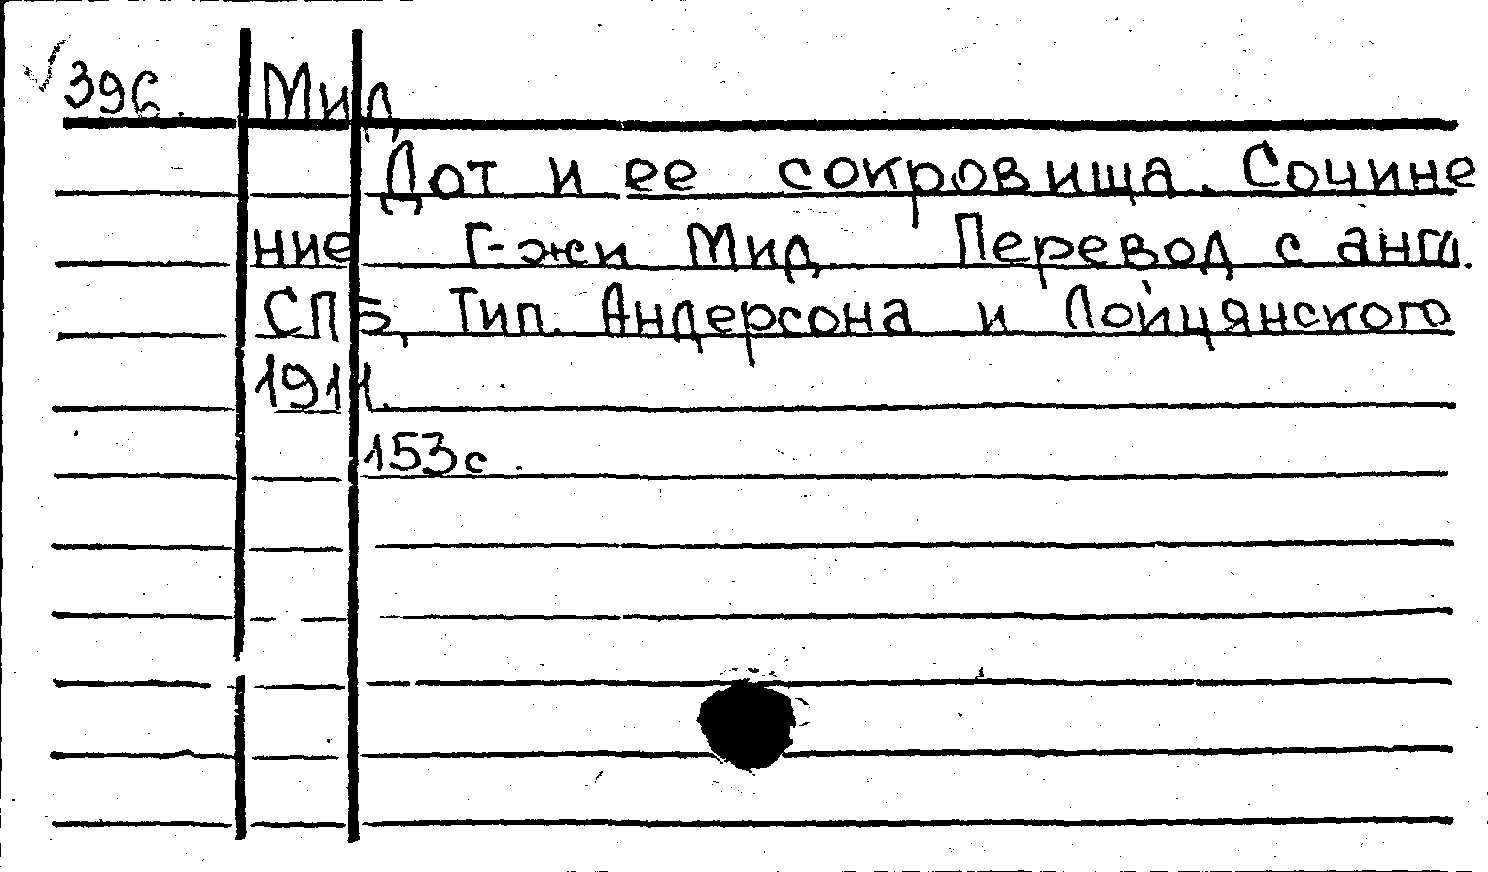 √396. Мид
Дот и ее сокровища. Сочине
ние Г-жи Мид Перевод с англ.
СПБ, Тип. Андерсона и Лойцянского
1911.
153с.